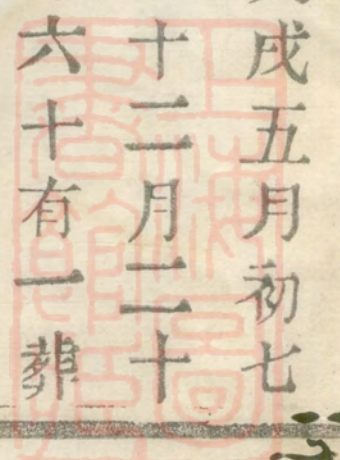 戌五月初七
十二月二十
六十有一葬